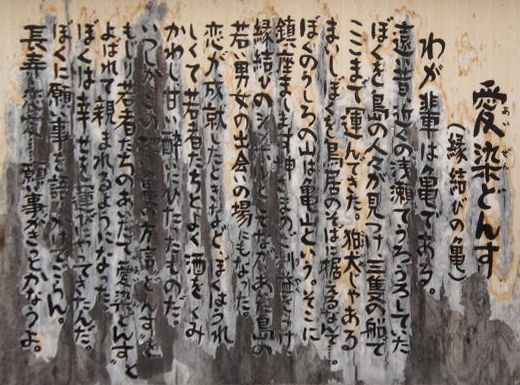 愛染どんす
(縁結びの亀)
わが輩は亀である。
遠い昔近くの浅瀬でうろうろしていた
ぼくを島の人々が見つけ三隻の船で
ここまで運んできた。狛犬じゃある
まいしぼくを鳥居のそばに据えるなんて…。
ぼくのうしろの山は亀山という。そこに
鎮座まします神さまの
縁結びのシンボル 島の
若い男女の出会いの場にもなった。
恋が成就したときなど、ぼくはうれ
しくて若者たちとよく酒をくみ
かわし甘い酔いにひたったものだ。
いつしか 亀の方言どんすと
もじり若者たちのあいだで愛染どんすと
よばれて親しまれるようになった。
ぼくは幸せを運びやってきたんだ。
ぼくに願い事を語りかけてごらん。
長寿 恋愛 願い事 かなうよ。